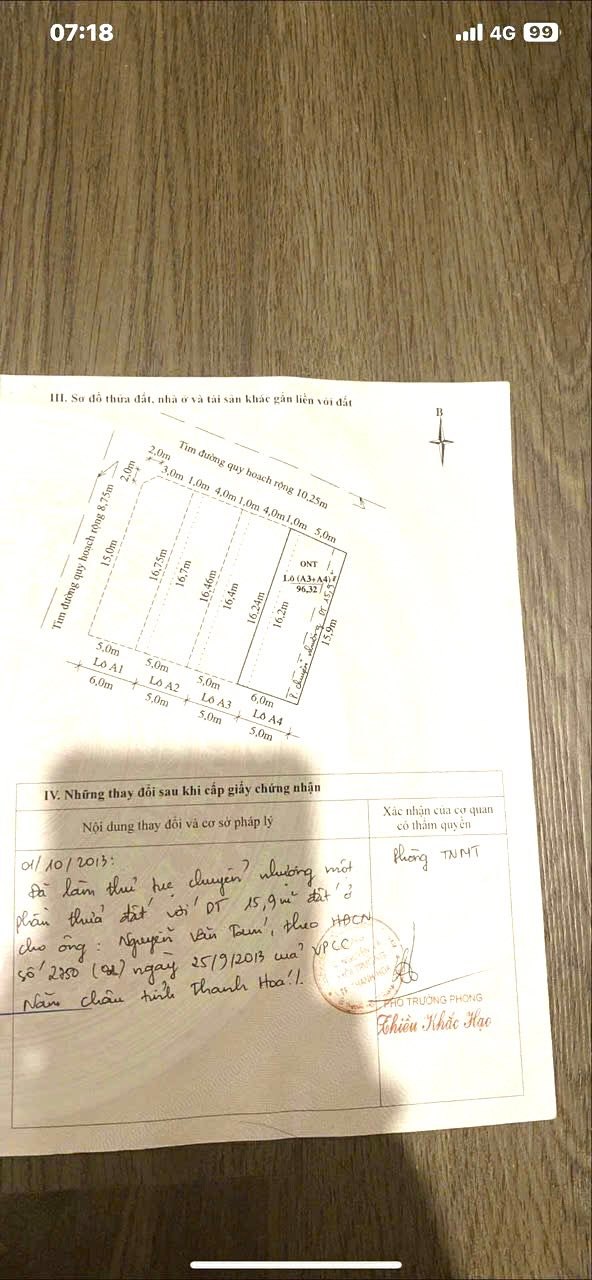 07:18
4G 99
III. Sơ đồ thửa đất, nhà ở và tài sản khác gắn liền với đất
B
Tim đường quy hoạch rộng 10,25m
Tim đường quy hoạch rộng 8,75m
2,0m
2,0m
3,0m 1,0m 4,0m 1,0m 4,0m 1,0m 5,0m
15,0m
16,75m
16,7m
16,46m
16,4m
16,24m
16,2m
15,9m
ONT
Lô (A3+A4)
96,32
chuyển nhượng DT 15,9
5,0m
5,0m
5,0m
6,0m
Lô A1
Lô A2
Lô A3
Lô A4
6,0m
5,0m
5,0m
5,0m
IV. Những thay đổi sau khi cấp giấy chứng nhận
Nội dung thay đổi và cơ sở pháp lý
Xác nhận của cơ quan
có thẩm quyền
01/10/2013:
Đã làm thủ tục chuyển nhượng một
phần thửa đất với DT 15,9 m² đất ở
cho ông: Nguyễn Văn Tam, theo HĐCN
số 2750 ngày 25/9/2013 của VPCC
Năm châu tỉnh Thanh Hoá./.
Phòng TNMT
PHÓ TRƯỞNG PHÒNG
Thiều Khắc Hạo